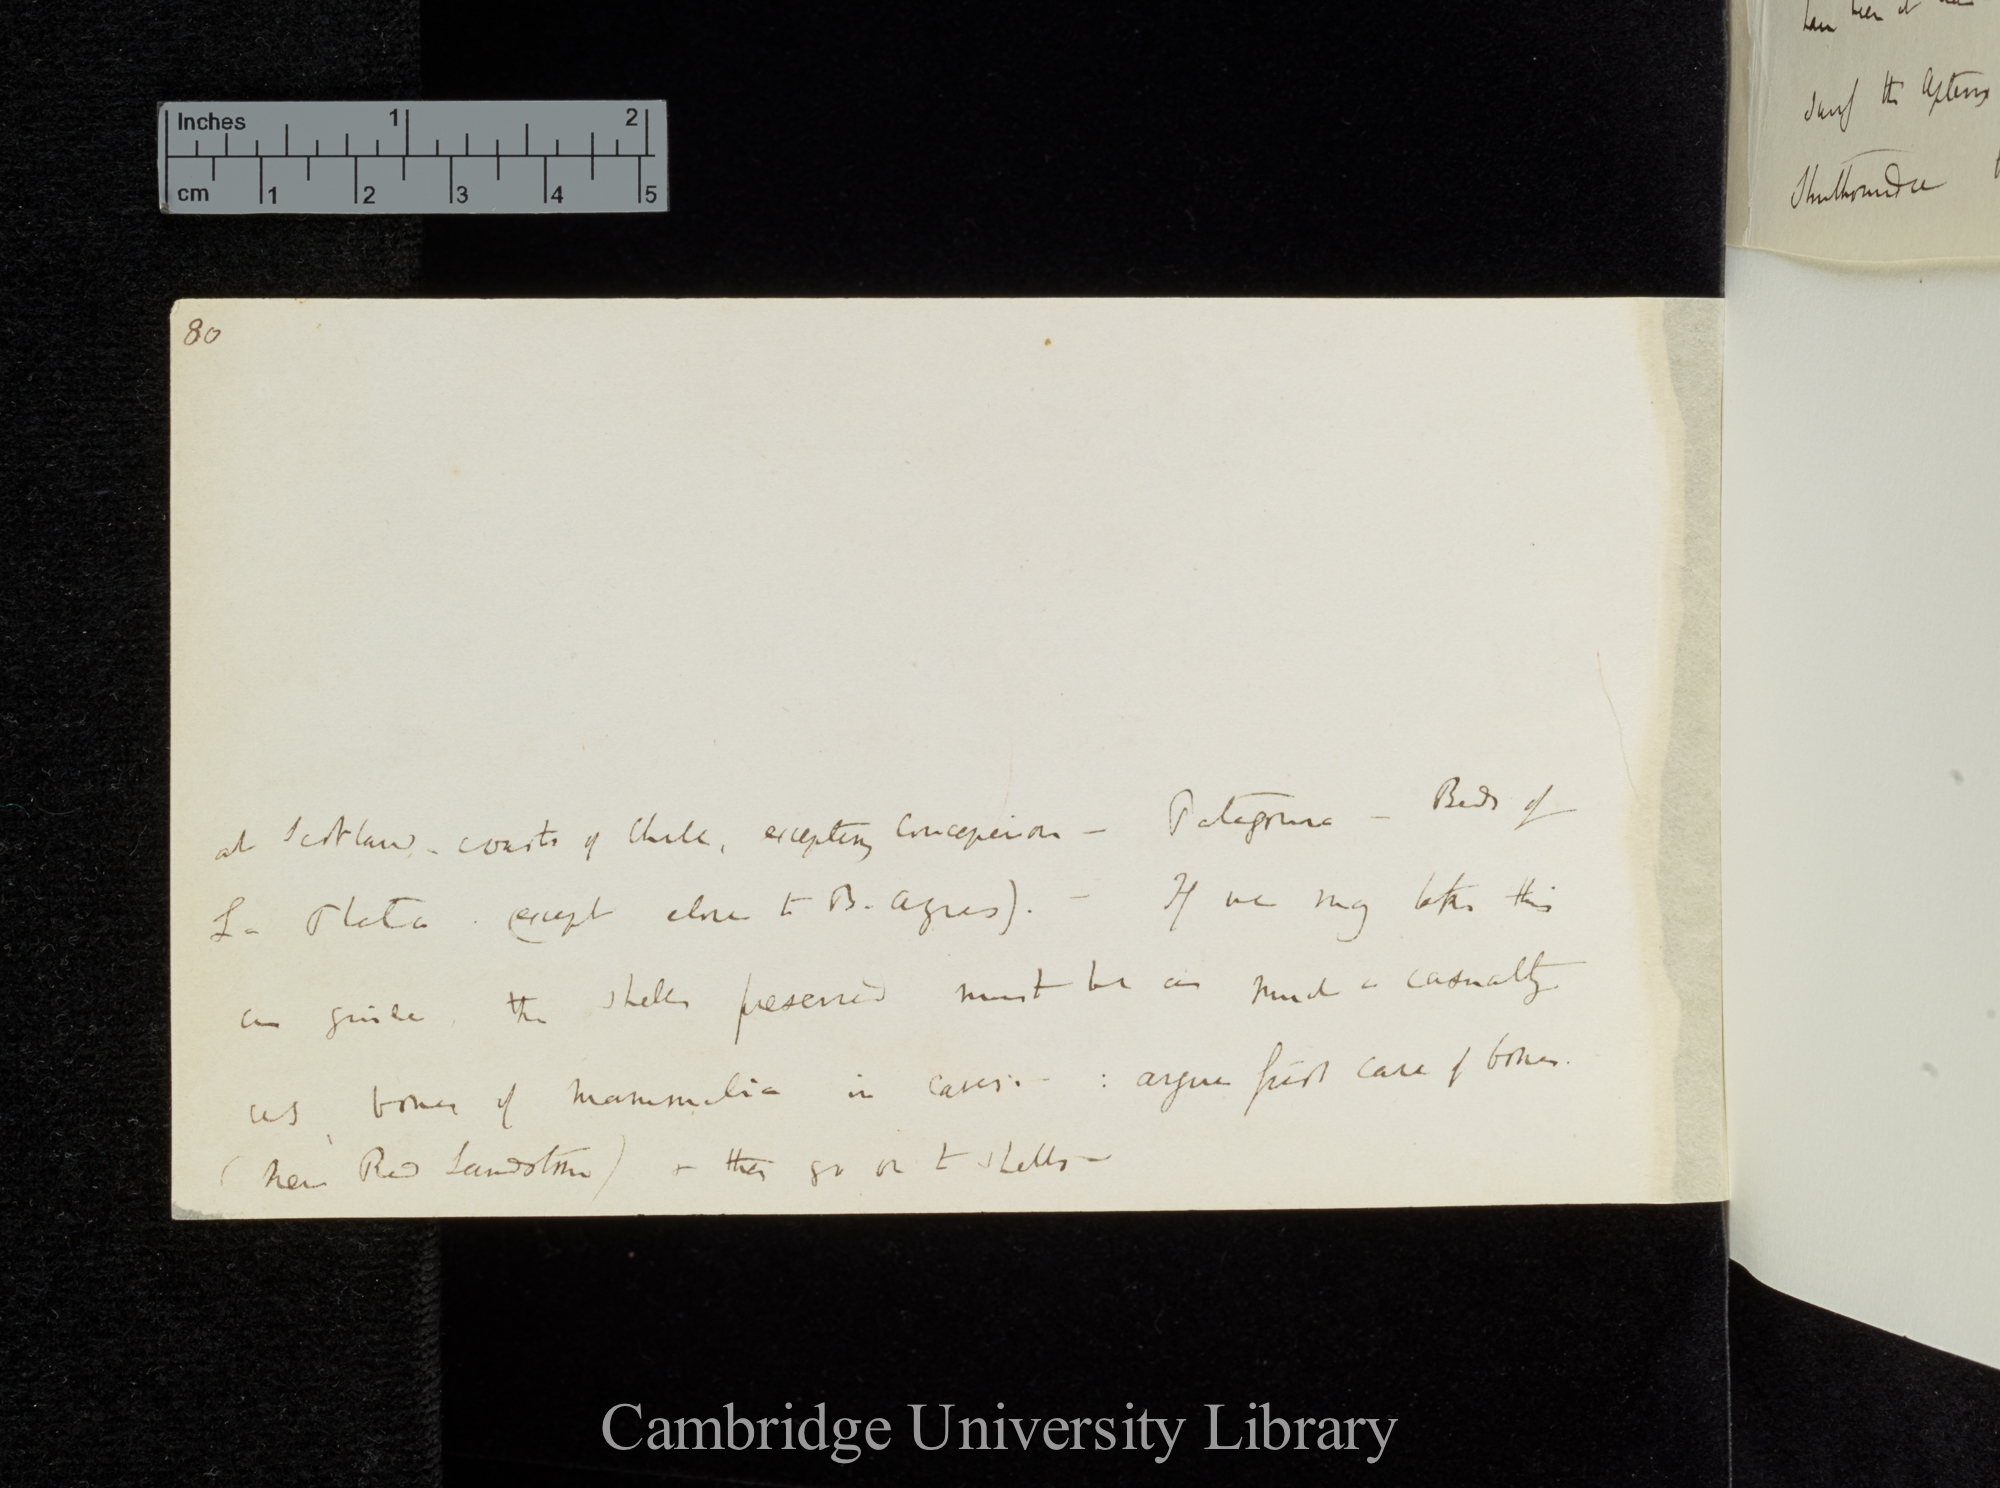 80
at Scotland. – coasts of Chile, excepting Concepcion – Patagonia – Beds of
La Plata. (except close to B. Ayres). – If we may take this
as guide, the shells preserved must be as much a casualty
as bones of Mammalia in caves: – : argue first case of bones.
(New Red Sandstone) + then go on to shells –
Inches 1 2
cm 1 2 3 4 5
have been
the Apteryx
Cambridge University Library